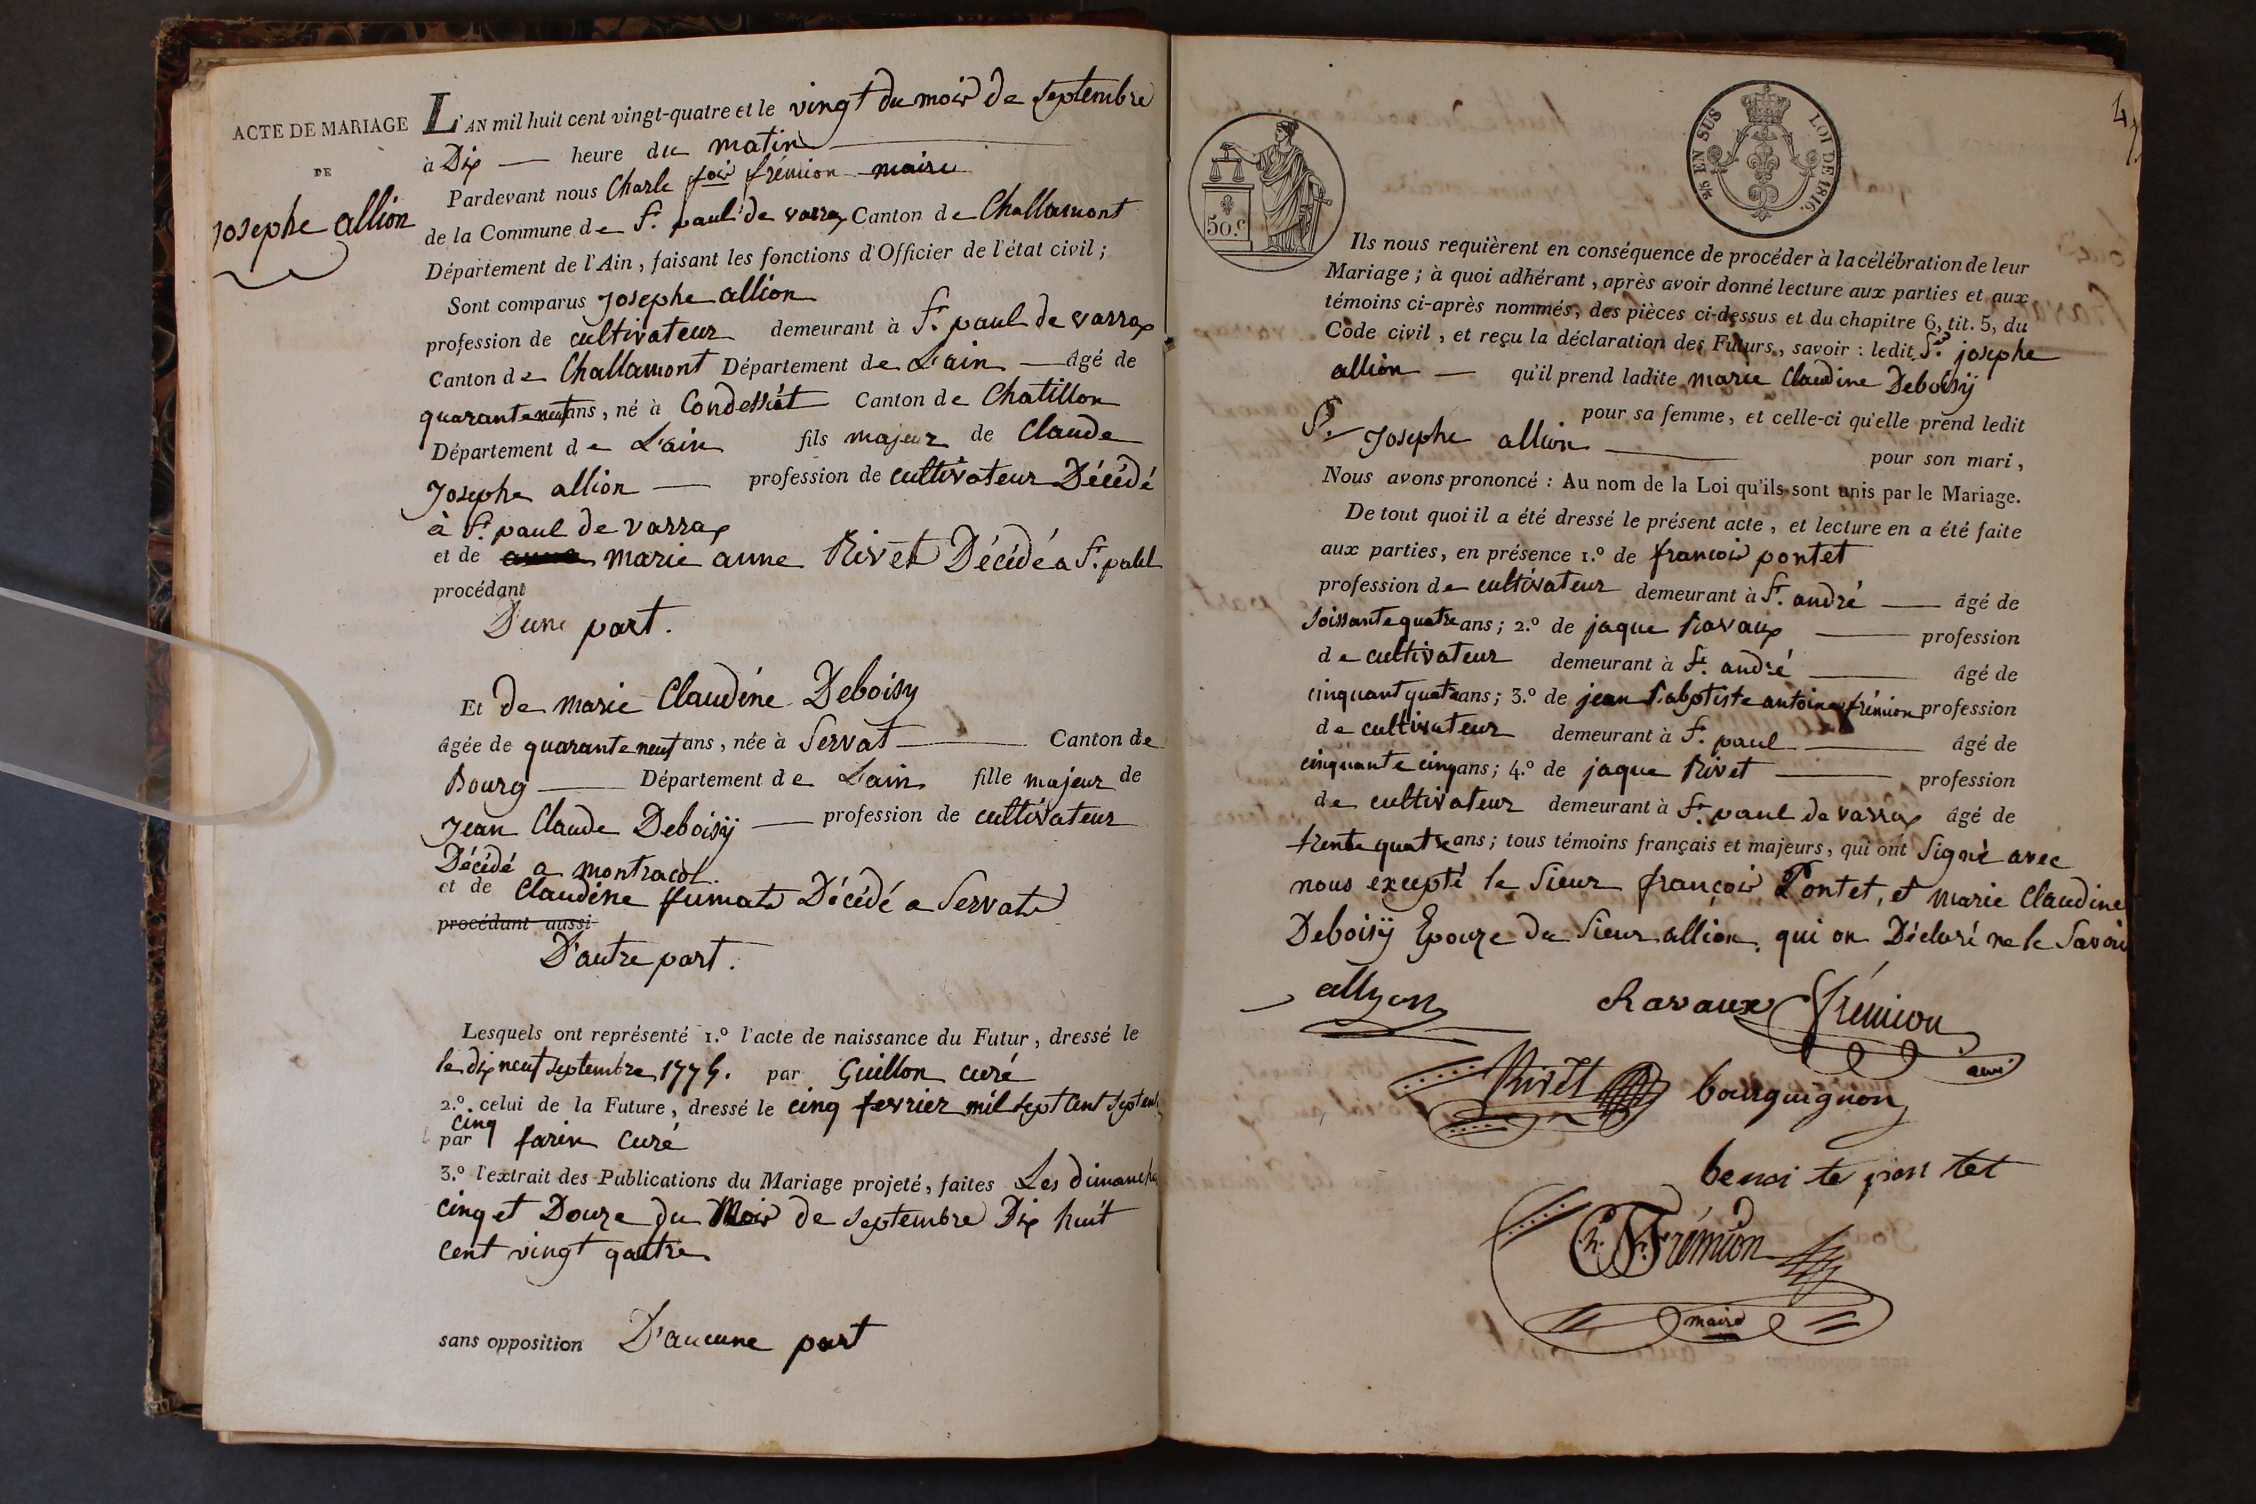 ACTE DE MARIAGE
DE
Josephe allion
L'AN mil huit cent vingt-quatre et le vingt du mois de Septembre
à Dix heure du matin
Pardevant nous Charle fois frémion maire
de la Commune de St. paul de varax Canton de Challamont
Département de l'Ain, faisant les fonctions d'Officier de l'état civil;
Sont comparus Josephe allion
profession de cultivateur demeurant à St. paul de varrax
Canton de Challamont Département de L'ain âgé de
quarante neuf ans, né à Condessiat Canton de Chatillon
Département de L'ain fils majeur de Claude
Josephe allion profession de cultivateur Décédé
à St. paul de varrax
et de marie anne Rivet Décédé a St. paul
procédant
D'une part.
Et de marie Claudine Deboisy
âgée de quarante neuf ans, née à Servat Canton de
Bourg Département de L'ain fille majeur de
Jean Claude Deboisÿ profession de cultivateur
Décédé a montracol.
et de Claudine fumat Décédé a Servat
procédant aussi
D'autre part.
Lesquels ont représenté 1.º l'acte de naissance du Futur, dressé le
le dix neuf septembre 1775. par Guillon curé
2.º celui de la Future, dressé le cinq fevrier mil sept Cent septente
cinq
par farin Curé
3.º l'extrait des Publications du Mariage projeté, faites Les dimanche
cinq et Douze du Mois de septembre Dix huit
cent vingt qattre
sans opposition D'aucune part
4
50.c
25 EN SUS
LOI DE 1816.
Ils nous requièrent en conséquence de procéder à la célébration de leur
Mariage; à quoi adhérant, après avoir donné lecture aux parties et aux
témoins ci-après nommés, des pièces ci-dessus et du chapitre 6, tit. 5, du
Code civil, et reçu la déclaration des Futurs, savoir : ledit Sr. josephe
allion qu'il prend ladite marie Claudine Deboisÿ
pour sa femme, et celle-ci qu'elle prend ledit
Sr. Josephe allion pour son mari,
Nous avons prononcé : Au nom de la Loi qu'ils sont unis par le Mariage.
De tout quoi il a été dressé le présent acte, et lecture en a été faite
aux parties, en présence 1.º de francois pontet
profession de cultivateur demeurant à St. andré âgé de
soissante quatre ans; 2.º de jaque Ravaux profession
de cultivateur demeurant à St. andré âgé de
cinquant quatre ans; 3.º de jean Babptiste antoine frémion profession
de cultivateur demeurant à St. paul âgé de
cinquante cinq ans; 4.º de jaque Rivet profession
de cultivateur demeurant à St. paul de varrax âgé de
trente quatre ans; tous témoins français et majeurs, qui ont Signé avec
nous excepté le Sieur françois Pontet, et marie Claudine
Deboisÿ Epouze du Sieur allion, qui on Déclaré ne le Savoir
allyon
Ravaux
frémion
Rivet
bourguignon
benoi te pon tet
Ch. Frémion
maire